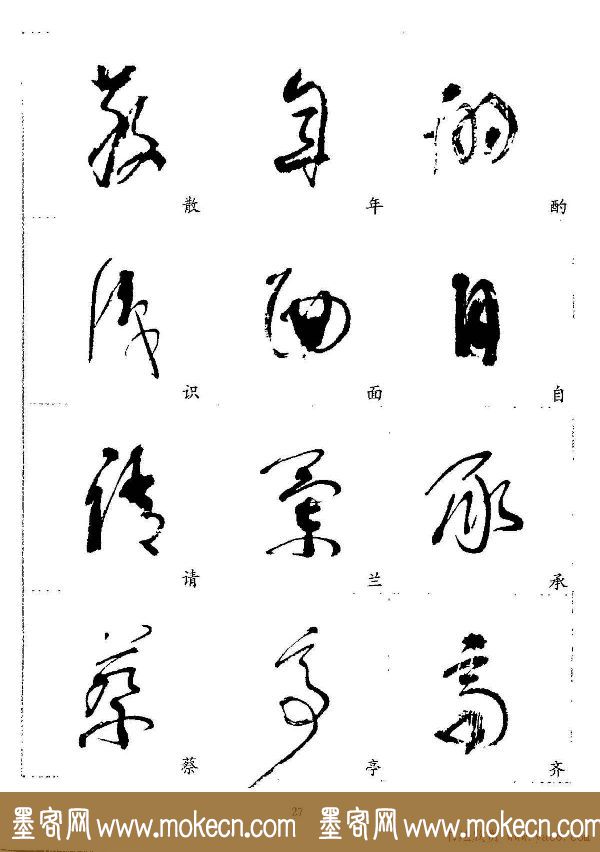 散 年 酌
识 面 自
请 兰 承
蔡 亭 齐
27
墨客网 www.mokecn.com 墨客网 www.mokecn.com